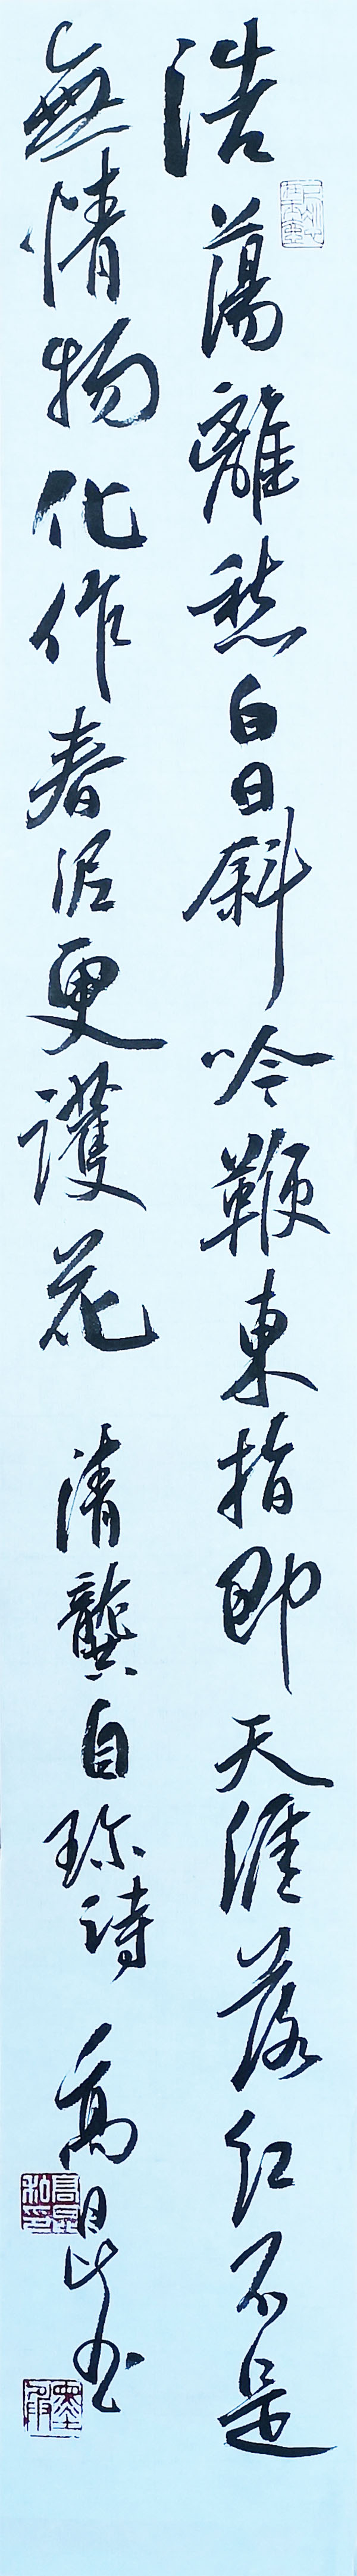 浩蕩離愁白日斜吟鞭東指即天涯落红不是
無情物化作春泥更護花 清龔自珍詩 高昆书